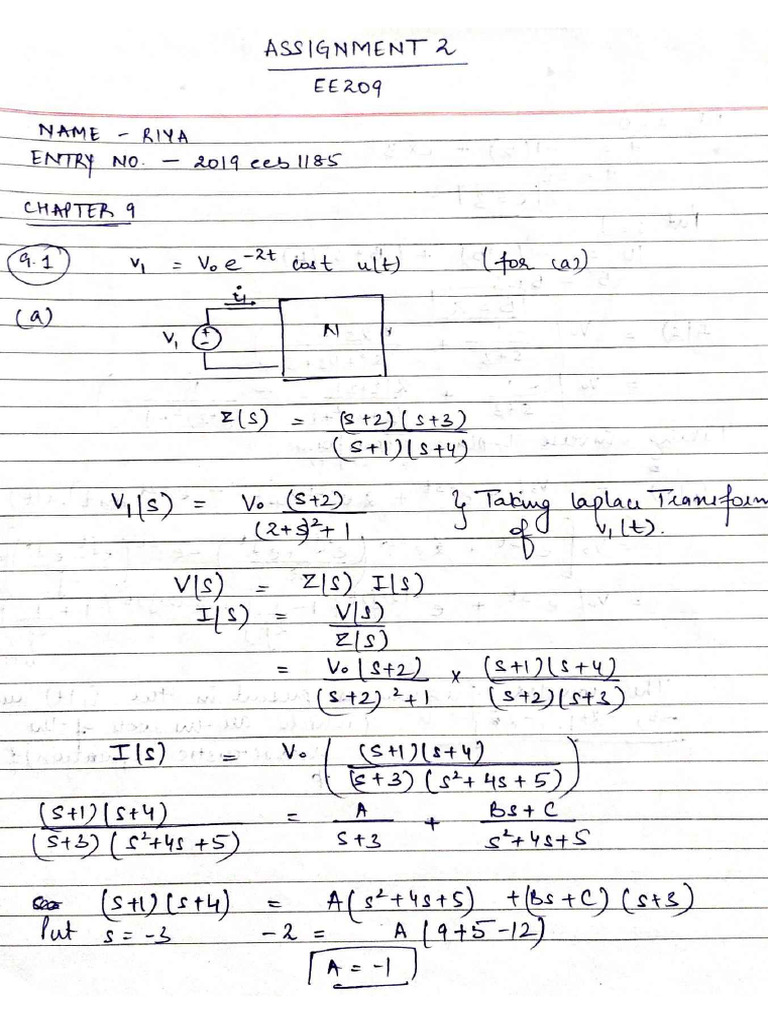 ASSIGNMENT 2
EE209
NAME - RIYA
ENTRY NO. - 2019 eeb1185
CHAPTER 9
9.1 v₁ = V₀ e^-2t cost u(t) (for (a))
(a)
i₁
V₁ + - N
Z(s) = (s+2)(s+3) / (s+1)(s+4)
V₁(s) = V₀ (s+2) / (2+s)²+1 } Taking laplace Transform of v₁(t).
V(s) = Z(s) I(s)
I(s) = V(s) / Z(s)
= V₀(s+2) / (s+2)²+1 × (s+1)(s+4) / (s+2)(s+3)
I(s) = V₀ ( (s+1)(s+4) / (s+3)(s²+4s+5) )
(s+1)(s+4) / (s+3)(s²+4s+5) = A / s+3 + Bs+C / s²+4s+5
(s+1)(s+4) = A(s²+4s+5) +(Bs+C)(s+3)
Put s=-3 -2 = A(9+5-12)
A = -1